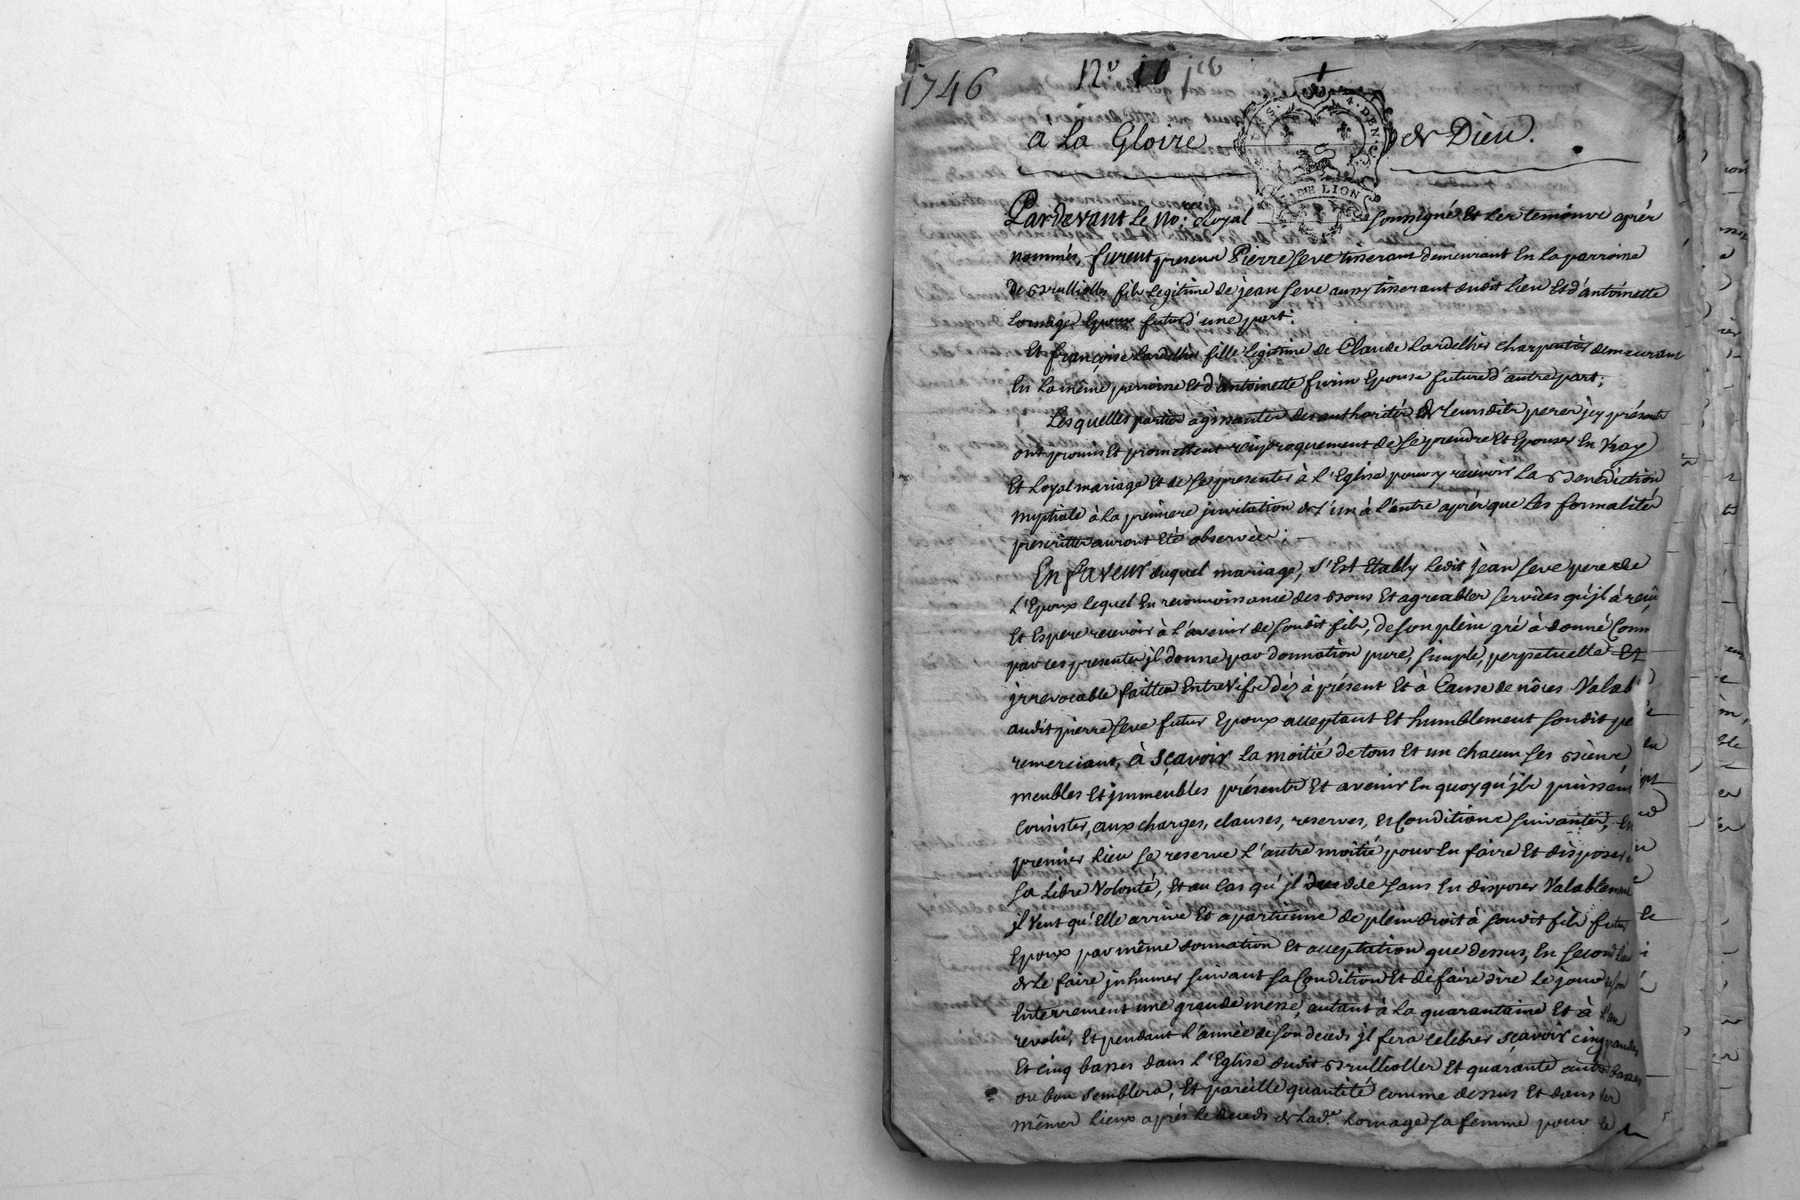 1746
N.o
a La Gloire de Dieu.
DE LION
Pardevant Le No.re Royal soussigné Et Les temoins après
nommés, furent presens Pierre Seve tisserant demeurant En La parroisse
De Brullioller fils Legitime de jean Seve aussy tisserant dudit Lieu Et d'antoinette
Lornage Epoux futur d'une part;
Et françoise Lardellier fille Legitime de Claude Lardellier charpentier demeurant
En La même parroisse Et d'antoinette Epouse future d'autre part;
Lesquelles parties agissantes des authorités de leurs dits peres jcy présents
ont promis Et promettent reciproquement de se prendre Et Epouser En Vray
Et Loyal mariage Et de se presenter à L'Eglise pour y recevoir La Benediction
nuptiale à La premiere jnvitation de L'un à L'autre après que Les formalités
prescrittes auront Eté observées;
En faveur duquel mariage, s'Est Etably Ledit jean Seve pere de
L'Epoux Lequel En reconnoissance des Bons Et agreables services qu'jl à reçû
Et Espere recevoir à L'avenir de son dit fils, de son plein gré à donné Comm
par ces presentes jl donne par donnation pure, simple, perpetuelle Et
jrrevocable faitte Entre Vifs Dez à présent Et à Cause de nôces Valab
audit pierre Seve futur Epoux acceptant Et humblement son dit pe
remerciant, à sçavoir La moitié de tous Et un chacun ses Biens
meubles Et jmmeubles présents Et avenir En quoy qu'jls puissent
consister, aux charges, clauses, reserves, et Conditions suivantes, En
premier Lieu se reserve L'autre moitié pour En faire Et disposer à
sa Libre Volonté, Et au Cas qu'jl decede sans En disposer Valablement
jl Veut qu'Elle arrive Et apartienne de plein droit à son dit fils futur
Epoux par même donnation Et acceptation que dessus, En second Lieu
de Le faire jnhumer suivant sa Condition Et de faire dire Le jour de son
Enterrement une grande messe, autant à La quarantaine Et à L'an
revolu, Et pendant L'année de son deceds jl fera celebrer sçavoir cinq grandes
Et cinq basses dans L'Eglise dudit Brullioller Et quarante autres basses
ou bon semblera, Et pareille quantité comme dessus Et dans Les
mêmes Lieux après Le deceds de Lad.e Lornage sa femme pour Le